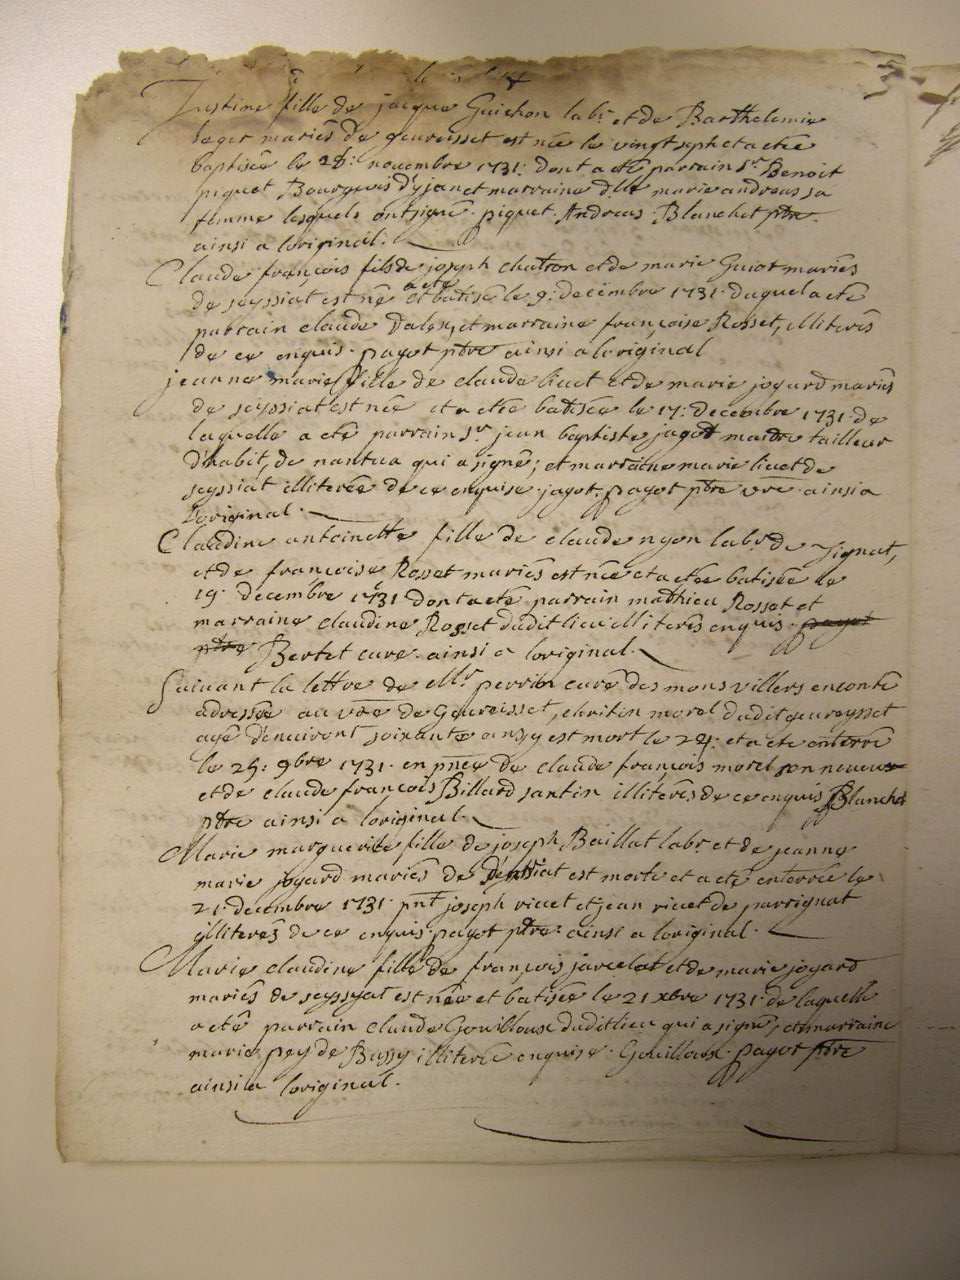 Justine fille de jacque Guichon lab.r et de Barthelemie
leger mariés de geureisset est née le vingt sept et a etée
baptisée le 28: novembre 1731: dont a eté parrain S.r Benoit
piquet Bourgeois d'yjan et marraine d.lle marie andreas sa
femme lesquels ont signé. piquet. Andreas. Blanchet ptre.
ainsi a loriginal.
Claude françois fils de joseph chatron et de marie Guiot mariés
a eté
de seyssiat est né et batisé le 9: decembre 1731. duquel a eté
parrain claude Dalex, et marraine françoise Rosset, illiterés
de ce enquis. pagot ptre ainsi a loriginal
jeanne marie fille de claude liuet et de marie joyard mariés
de seyssiat est née et a etée batisée le 17: decembre 1731. de
laquelle a eté parrain S.r jean baptiste jagot maitre tailleur
d'habit, de nantua qui a signé; et marraine marie liuet de
seyssiat illiterée de ce enquise. jagot. pagot ptre vre. ainsi a
l'original.
Claudine antoinette fille de claude nyon lab.r de signat,
et de françoise Rosset mariés est née et a etée batisée le
19. decembre 1731 dont a eté parrain mathieu Rosset et
marraine claudine Rosset dudit lieu illiterés enquis. pagot
ptre Bertet curé. ainsi a loriginal.
Suivant la lettre de M.r perrin curé des monsvillers en conté
adressée au vre de Geureisset, christin morel dudit geureysset
agé d'enuiront soixante ans y est mort le 24: et a eté enterré
le 25: 9bre 1731. en pnce de claude françois morel son neueux
et de claude françois Billard santin illiterés de ce enquis Blanchet
ptre ainsi a loriginal.
Marie marguerite fille de joseph Baillat lab.r et de jeanne
marie joyard mariés de seyssiat est morte et a eté enterrée le
21. decembre 1731. pnt joseph riuet et jean riuet de parrignat
illiterés de ce enquis pagot ptre: ainsi a loriginal.
Marie claudine fille de françois jarcelat et de marie joyard
mariés de seyssyat est née et batisée le 21 xbre 1731. de laquelle
a eté parrain claude Gouilloux dudit lieu qui a signé; et marraine
marie pey de Bussy illiterée enquise. Gouilloux. pagot ptre
ainsi a loriginal.